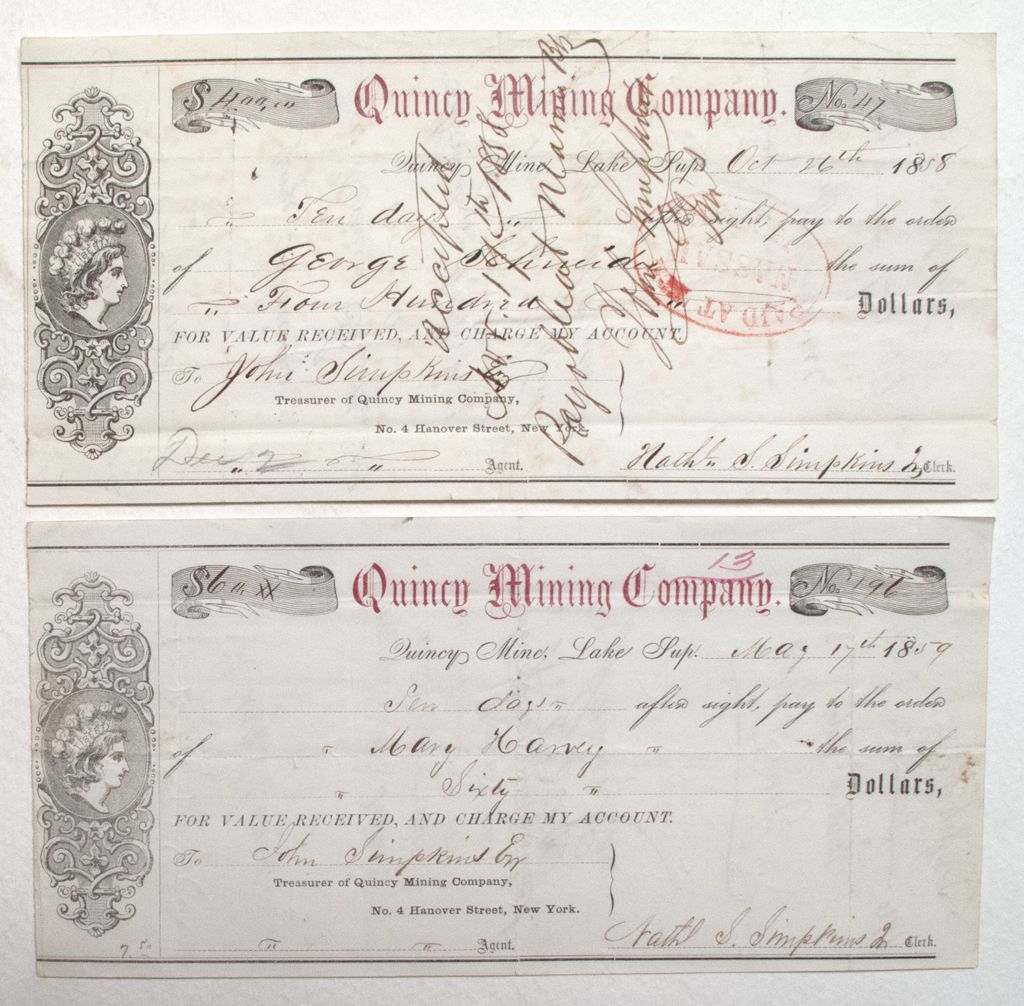 $ 400,00 Quincy Mining Company. No. 47
Quincy Mine, Lake Sup. Oct 26th 1858
" Ten days " after sight, pay to the order
of George Schneider the sum of
" Four Hundred " Dollars,
FOR VALUE RECEIVED, AND CHARGE MY ACCOUNT.
To John Simpkins
Treasurer of Quincy Mining Company,
No. 4 Hanover Street, New York.
Dec 2 " " Agent. Nathl. S. Simpkins Jr Clerk.
accepted
1858
Payable at
John Simpkins
PAID AT
13
$60 Quincy Mining Company. No. 196
Quincy Mine, Lake Sup. May 17th 1859
Ten days " after sight, pay to the order
of " Mary Harvey " the sum of
" Sixty " Dollars,
FOR VALUE RECEIVED, AND CHARGE MY ACCOUNT.
To John Simpkins Esq
Treasurer of Quincy Mining Company,
No. 4 Hanover Street, New York.
" " Agent. Nathl S. Simpkins Jr Clerk.